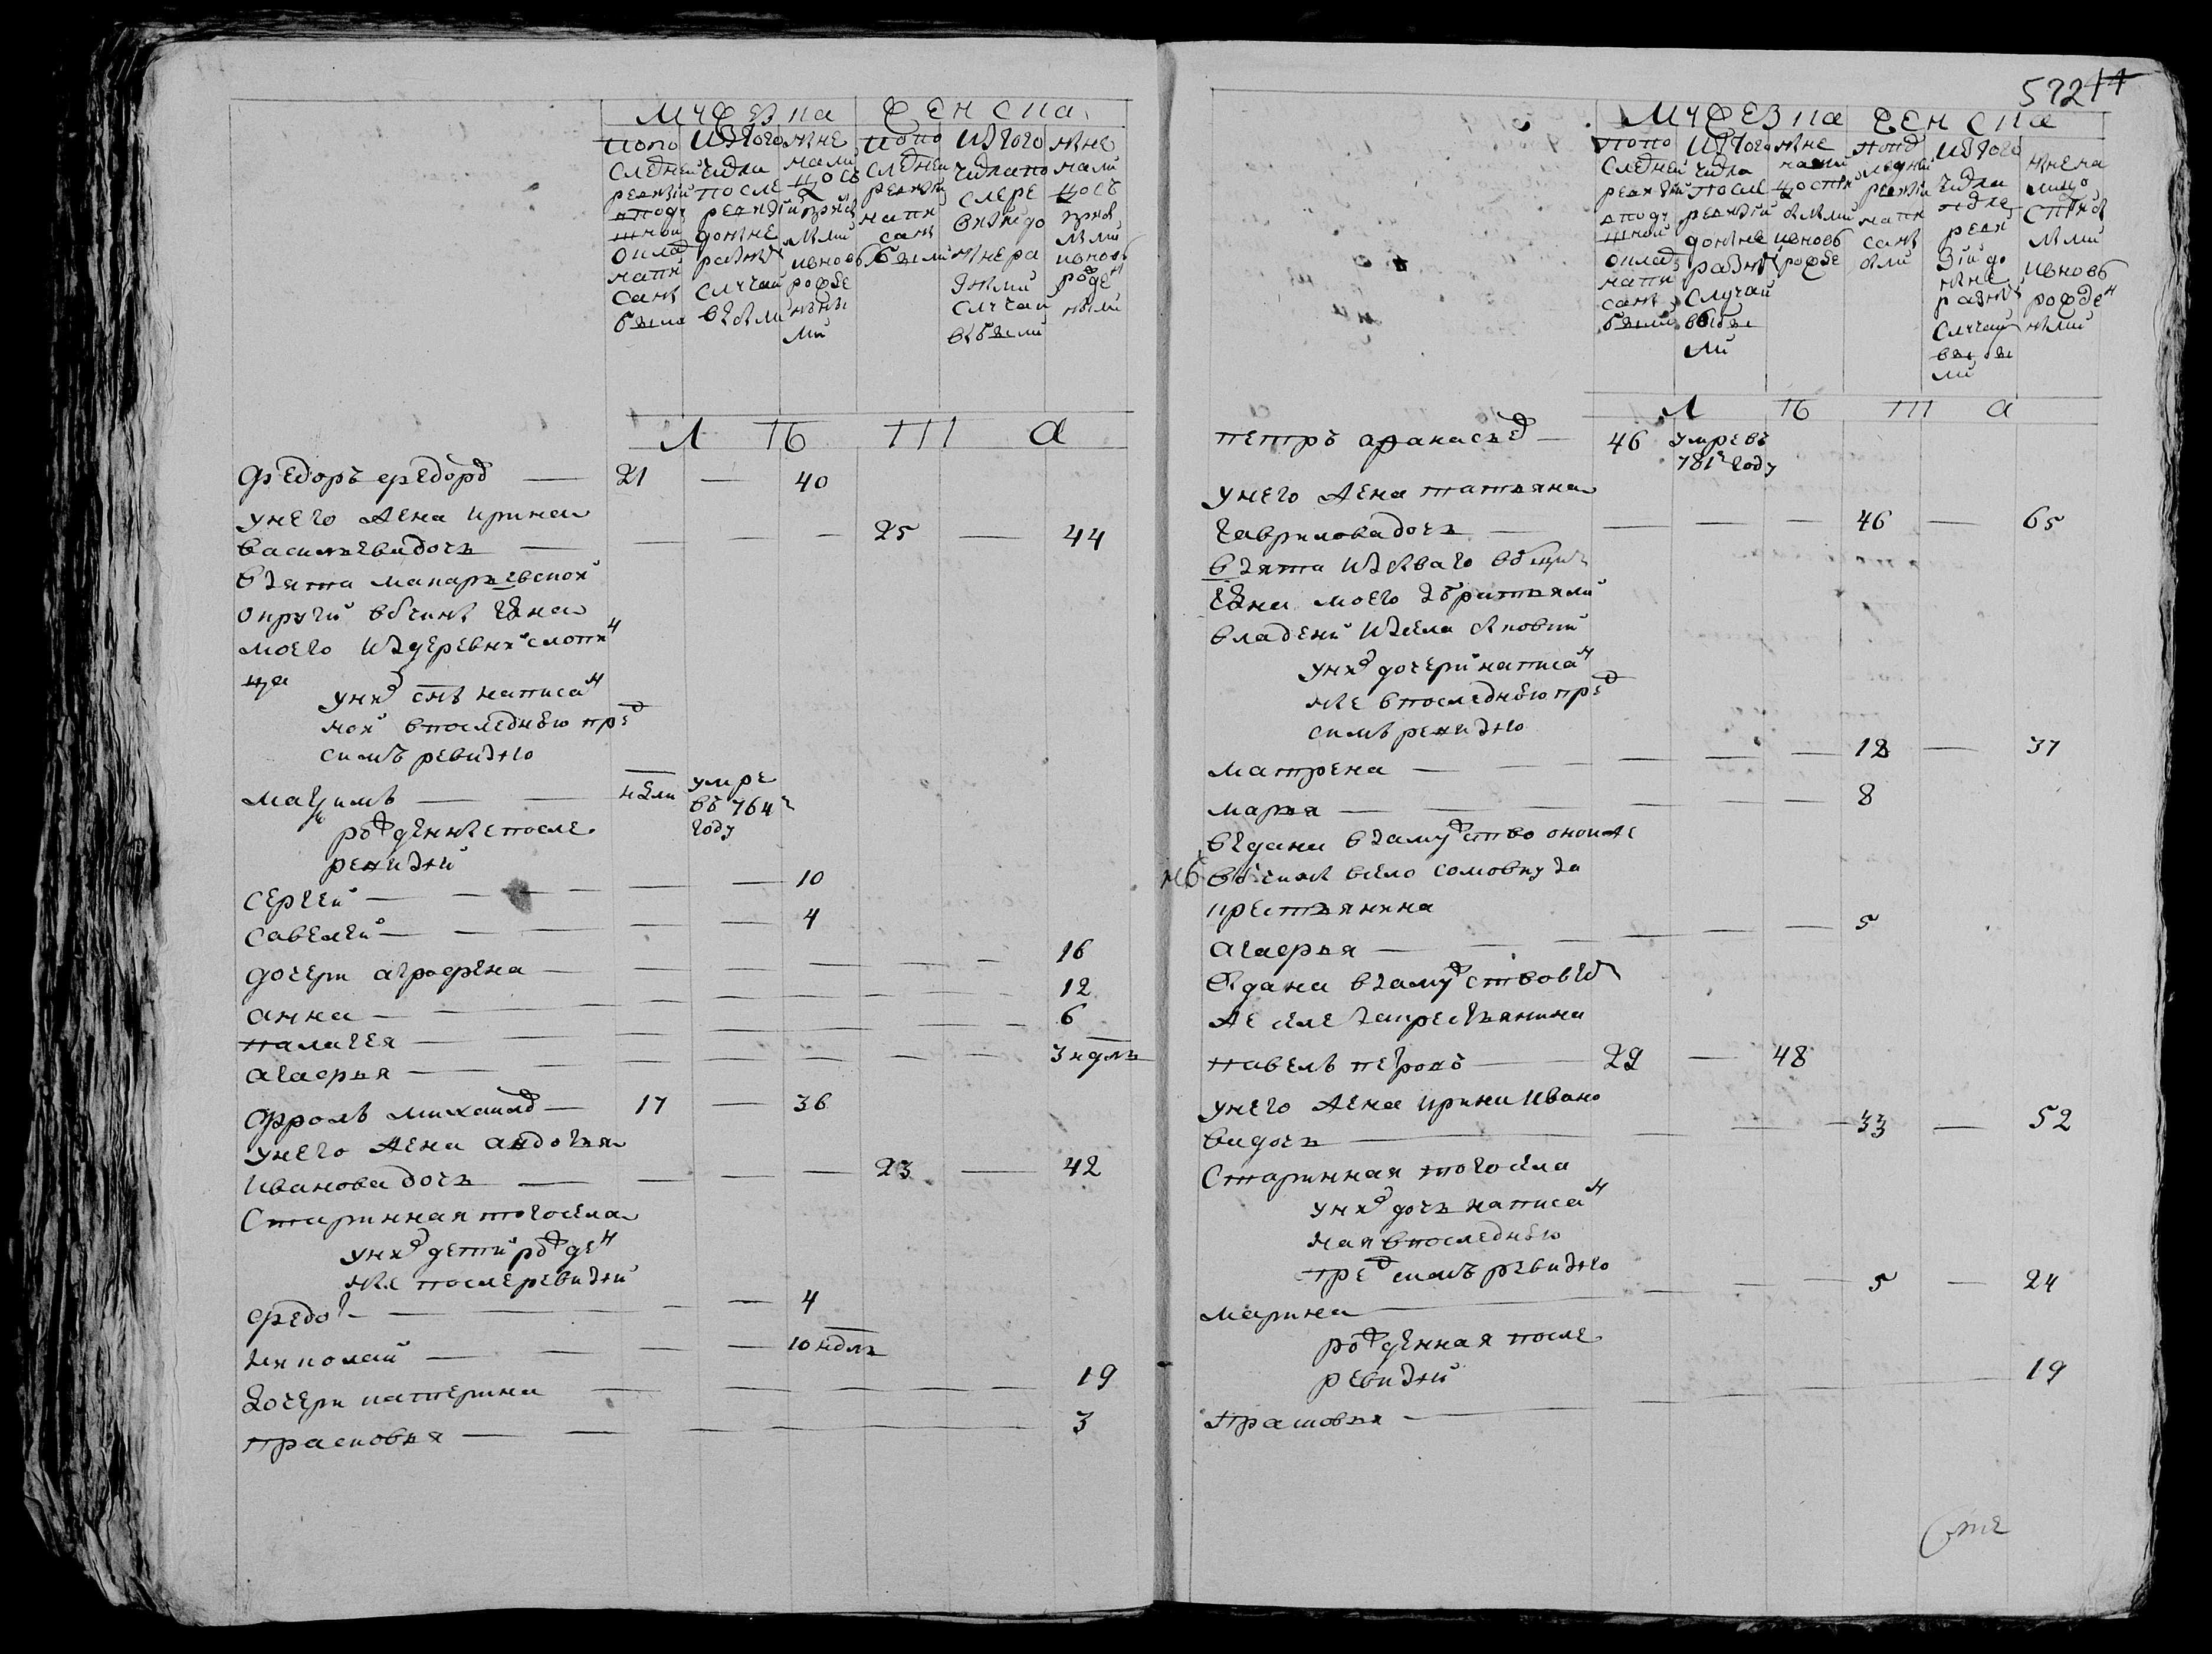 Мужеска
Женска
По по
следней
ревизии
в поду
шной
оклад
написаны
были
Из того
числа
после
ревизии
до ныне
разны
случаи
выбыли
Ныне
нали
цо съ
прибылы
ми
и вновь
рожде
нны
ми
По по
следней
ревизии
напи
саны
были
Из того
числа по
сле ре
визии до
ныне ра
зными
случаи
выбыли
Ныне
нали
цо съ
прибы
лыми
и вновь
рожден
ными
Л Ѣ Т А
Федоръ Федоров — 21 — 40
У него жена Ирина
Васильева дочь — 25 — 44
взята Макарьевской
округи вотчины гдна
моего из деревни Слопи
нца
У них сын написан
ной в последнюю пред
сим ревизию
Максим — нѣдли умре
въ 764 г
году
рожденные после
ревизии
Сергей — 10
Савелей — 4
дочери Аграфена — 16
Анна — 12
Палагея — 6
Агафья — 3 ндлъ
Фролъ Михайлов — 17 — 36
У него жена Авдотья
Иванова дочь — 23 — 42
Старинная того села
У них дети рожден
ные после ревизии
Федот — 4
Николай — 10 ндлъ
Дочери Катерина — 19
Прасковья — 3
572
14
Мужеска
Женска
По по
следней
ревизии
в поду
шной
оклад
написаны
были
Из того
числа
после
ревизии
до ныне
разны
случаи
выбы
ли
Ныне
по по
следней
ревизии
напи
саны
Из того
числа
после
реви
зии до
ныне
разны
случаи
выбы
ли
Ныне на
лицо
и вновь
рожден
ными
Л Ѣ Т А
Петръ Афанасьев — 46 умре въ
781 г году
У него жена Татьяна
Гаврилова дочь — 46 — 65
гдна моего з братьями
владени из села
У них дочери написан
ные в последнюю пред
сим ревизию
Матрена — 12 — 31
Марья — 8
выдана в замужство оной же
вотчины в село Сомовку за
крестьянина
Агафья — 5
выдана в замужство в том
же селе за крестьянина
Павелъ Петровъ — 29 — 48
У него жена Ирина Ивано
ва дочь — 33 — 52
Старинная того села
У них дочь написан
ная в последнюю
пред сим ревизию
Марина — 5 — 24
рожденная после
ревизии
Прасковья — 19